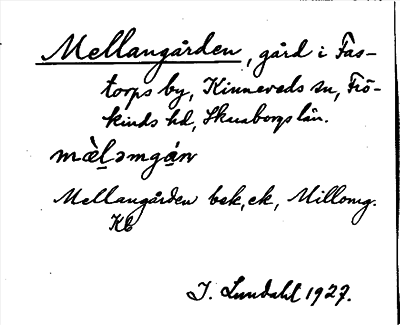 Mellangården, gård i Fas-
torps by, Kinneveds sn, Frö-
kinds hd, Skaraborgs län.
mæ̀l̠əmgán
Mellangården bsk, ek, Millomg.
Kb
I. Lundahl 1927.